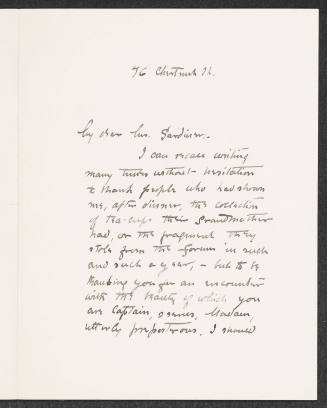 76 Chestnut St.
My dear Mrs. Gardiner.
I can recall writing
many times without hesitation
to thank people who had shown
me, after dinner, the collection
of tea-cups their Grandmother
had, or the fragment they
stole from the forum in such
and such a year, - but to be
thanking you for an encounter
with the beauty of which you
are Captain, seems, Madam,
utterly preposterous. I should